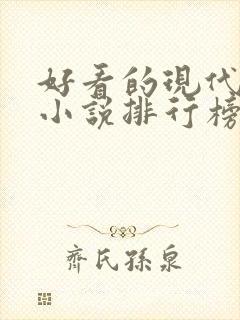 好看的現代
小說排行榜
齊氏孫泉